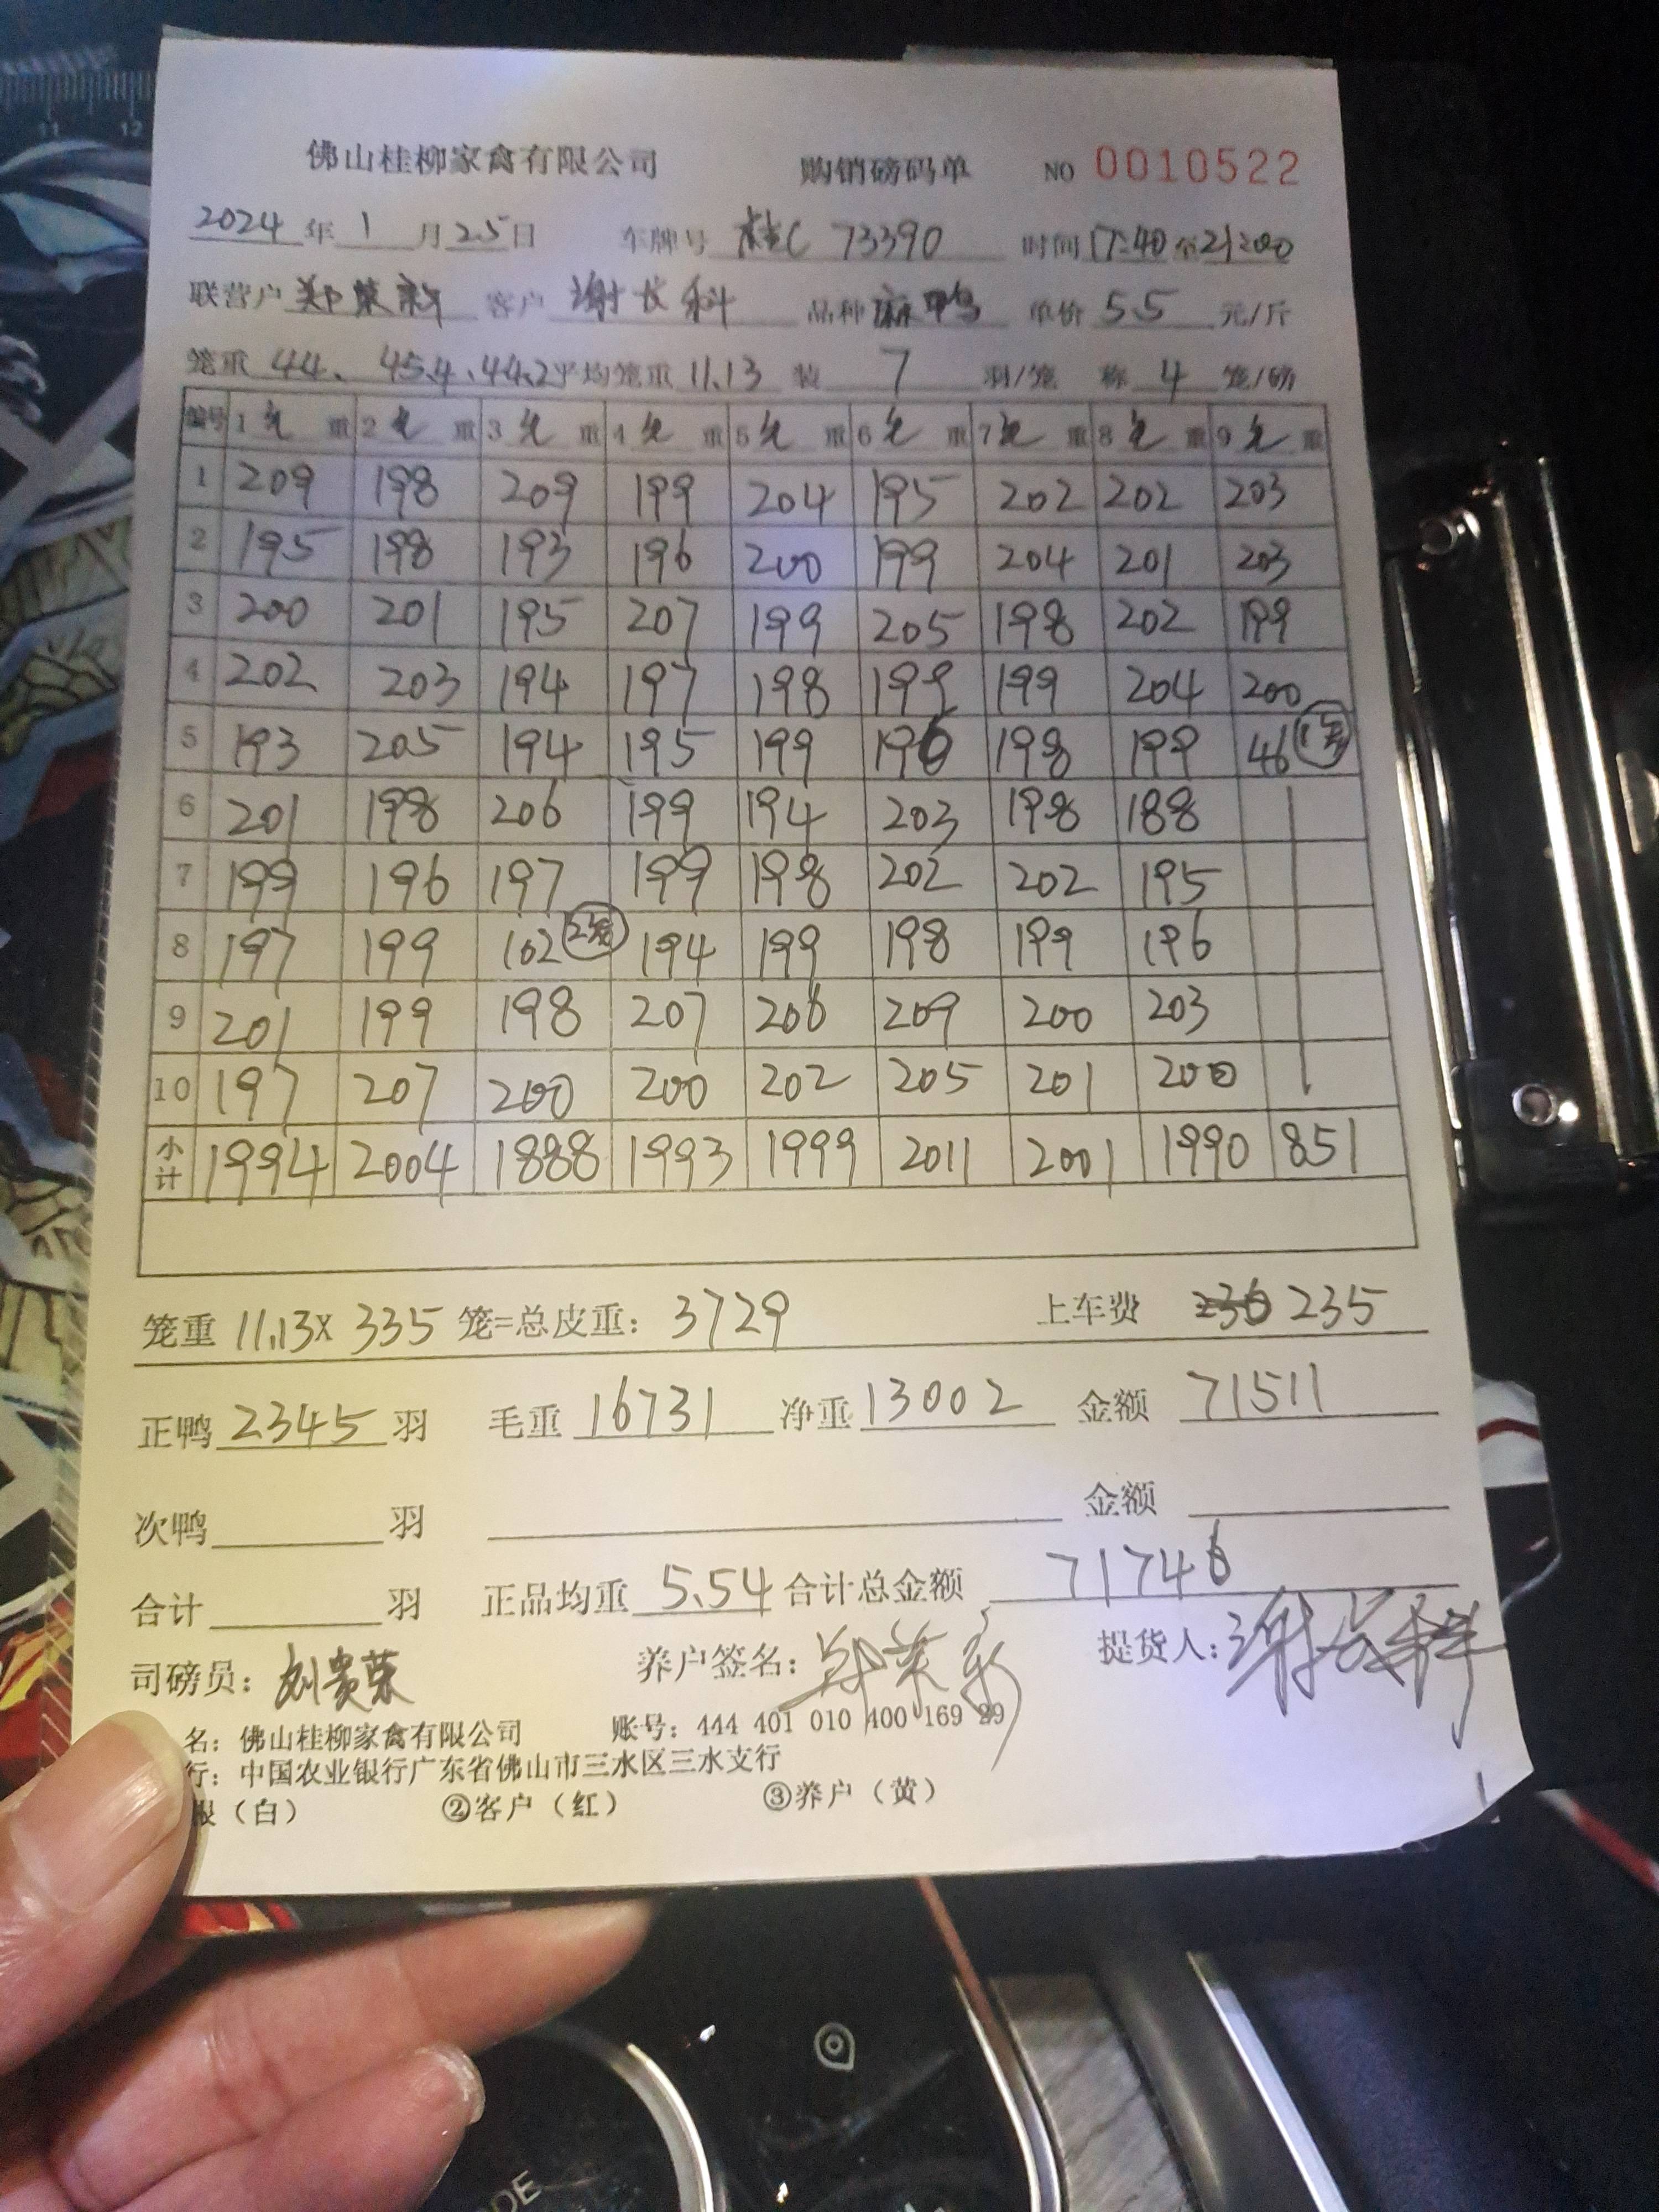 佛山桂柳家禽有限公司 购销磅码单 NO 0010522
2024年1月25日 车牌号 桂C 73390 时间17:40至21:00
联营户 郑荣新 客户 谢长科 品种 麻鸭 单价 5.5 元/斤
笼重 44、45.4、44.2 平均笼重 11.13 装 7 羽/笼 称 4 笼/磅
编号 1毛重 2毛重 3毛重 4毛重 5毛重 6毛重 7毛重 8毛重 9毛重
1 209 198 209 199 204 195 202 202 203
2 195 198 193 196 200 199 204 201 203
3 200 201 195 207 199 205 198 202 199
4 202 203 194 197 198 199 199 204 200
5 193 205 194 195 199 196 198 199 46 1笼
6 201 198 206 199 194 203 198 188
7 199 196 197 199 198 202 202 195
8 197 199 102 2笼 194 199 198 199 196
9 201 199 198 207 206 209 200 203
10 197 207 200 200 202 205 201 200
小计 1994 2004 1888 1993 1999 2011 2001 1990 851
笼重 11.13X 335 笼=总皮重：3729 上车费 236 235
正鸭 2345 羽 毛重 16731 净重 13002 金额 71511
次鸭 羽 金额
合计 羽 正品均重 5.54 合计总金额 71746
司磅员：刘贵荣 养户签名：郑荣新 提货人：谢长科
名：佛山桂柳家禽有限公司 账号：444 401 010 400 169 29
行：中国农业银行广东省佛山市三水区三水支行
根（白） ②客户（红） ③养户（黄）